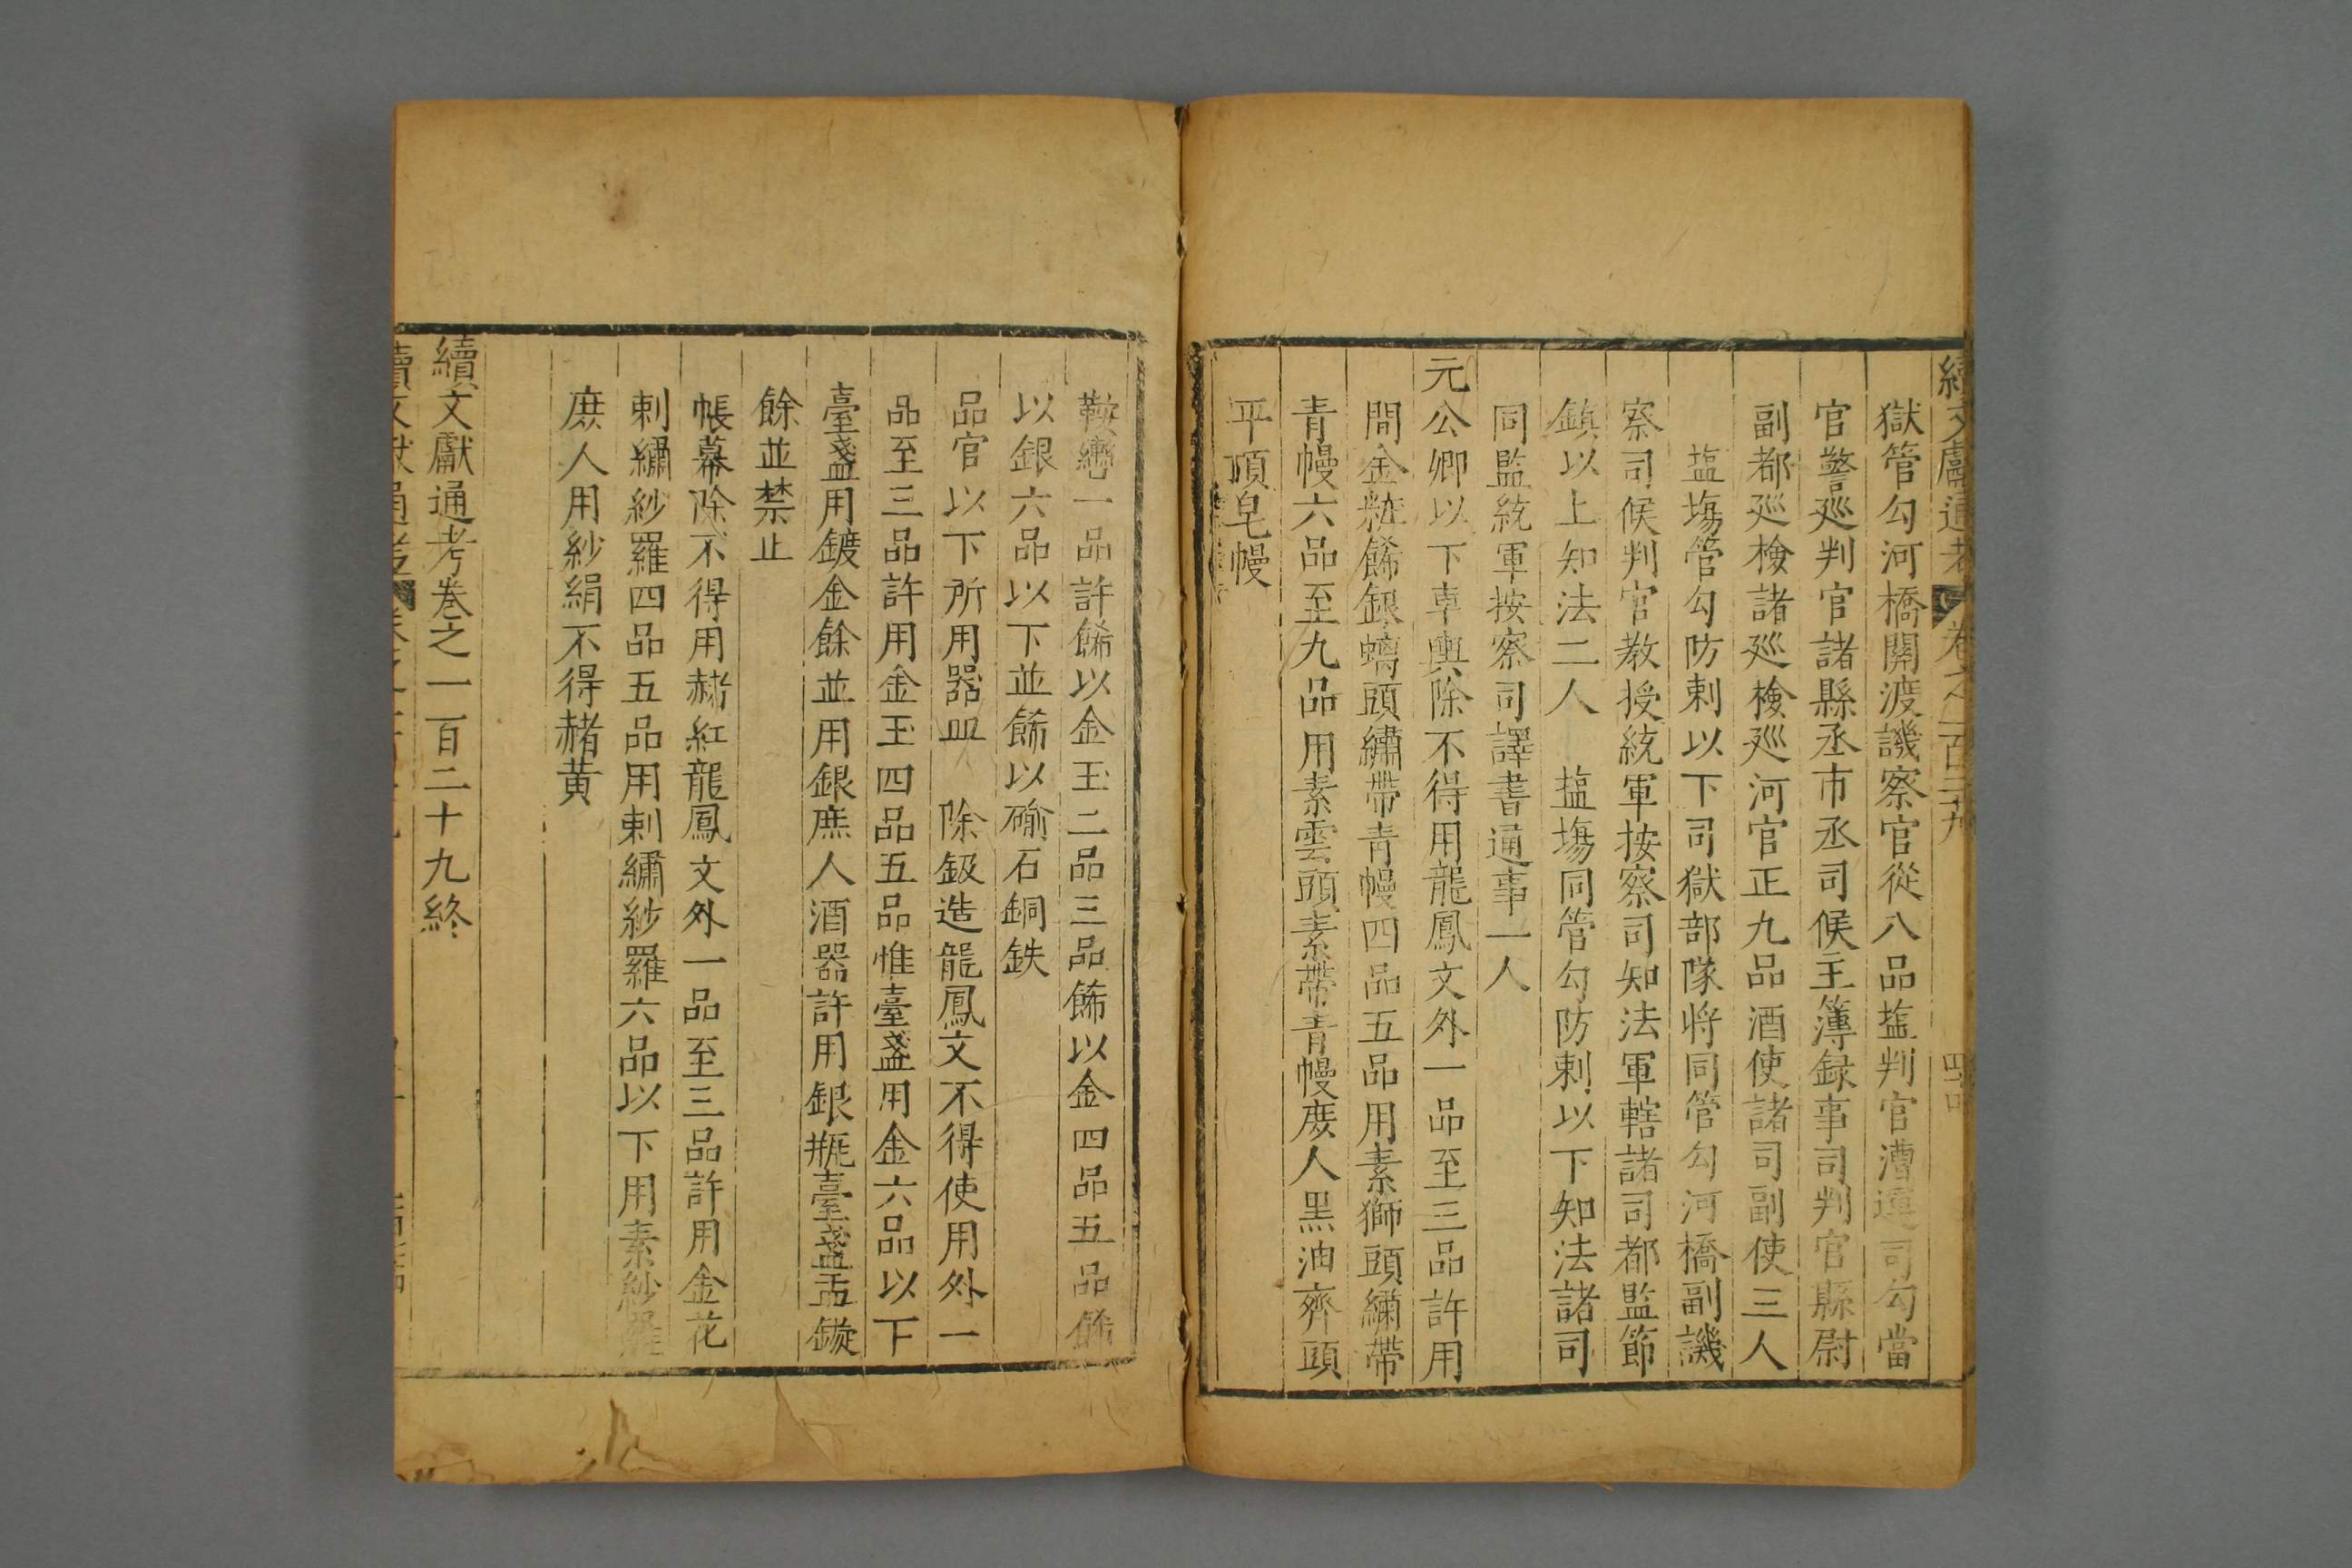 續文獻通考 卷之一百二十九
獄管勾河橋關渡譏察官從八品塩判官漕運司勾當
官警廵判官諸縣丞市丞司候主簿録事司判官縣尉
副都廵檢諸廵檢廵河官正九品酒使諸司副使三人
塩場管勾防刺以下司獄部隊將同管勾河橋副譏
察司候判官教授統軍按察司知法軍轄諸司都監節
鎮以上知法二人 塩場同管勾防刺以下知法諸司
同監統軍按察司譯書通事一人
元公卿以下車輿除不得用龍鳳文外一品至三品許用
間金粧餙銀螭頭繡帶青幔四品五品用素獅頭繡帶
青幔六品至九品用素雲頭素帶青幔庶人黒油齊頭
平頂皂幔
鞍轡一品許餙以金玉二品三品餙以金四品五品餙
以銀六品以下並餙以礆石銅鉄
品官以下所用器皿 除鈒造龍鳳文不得使用外一
品至三品許用金玉四品五品惟臺盞用金六品以下
臺盞用鍍金餘並用銀庶人酒器許用銀瓶臺盞盂鏇
餘並禁止
帳幕除不得用赭紅龍鳳文外一品至三品許用金花
刺繡紗羅四品五品用刺繡紗羅六品以下用素紗羅
庶人用紗絹不得赭黄
續文獻通考卷之一百二十九終